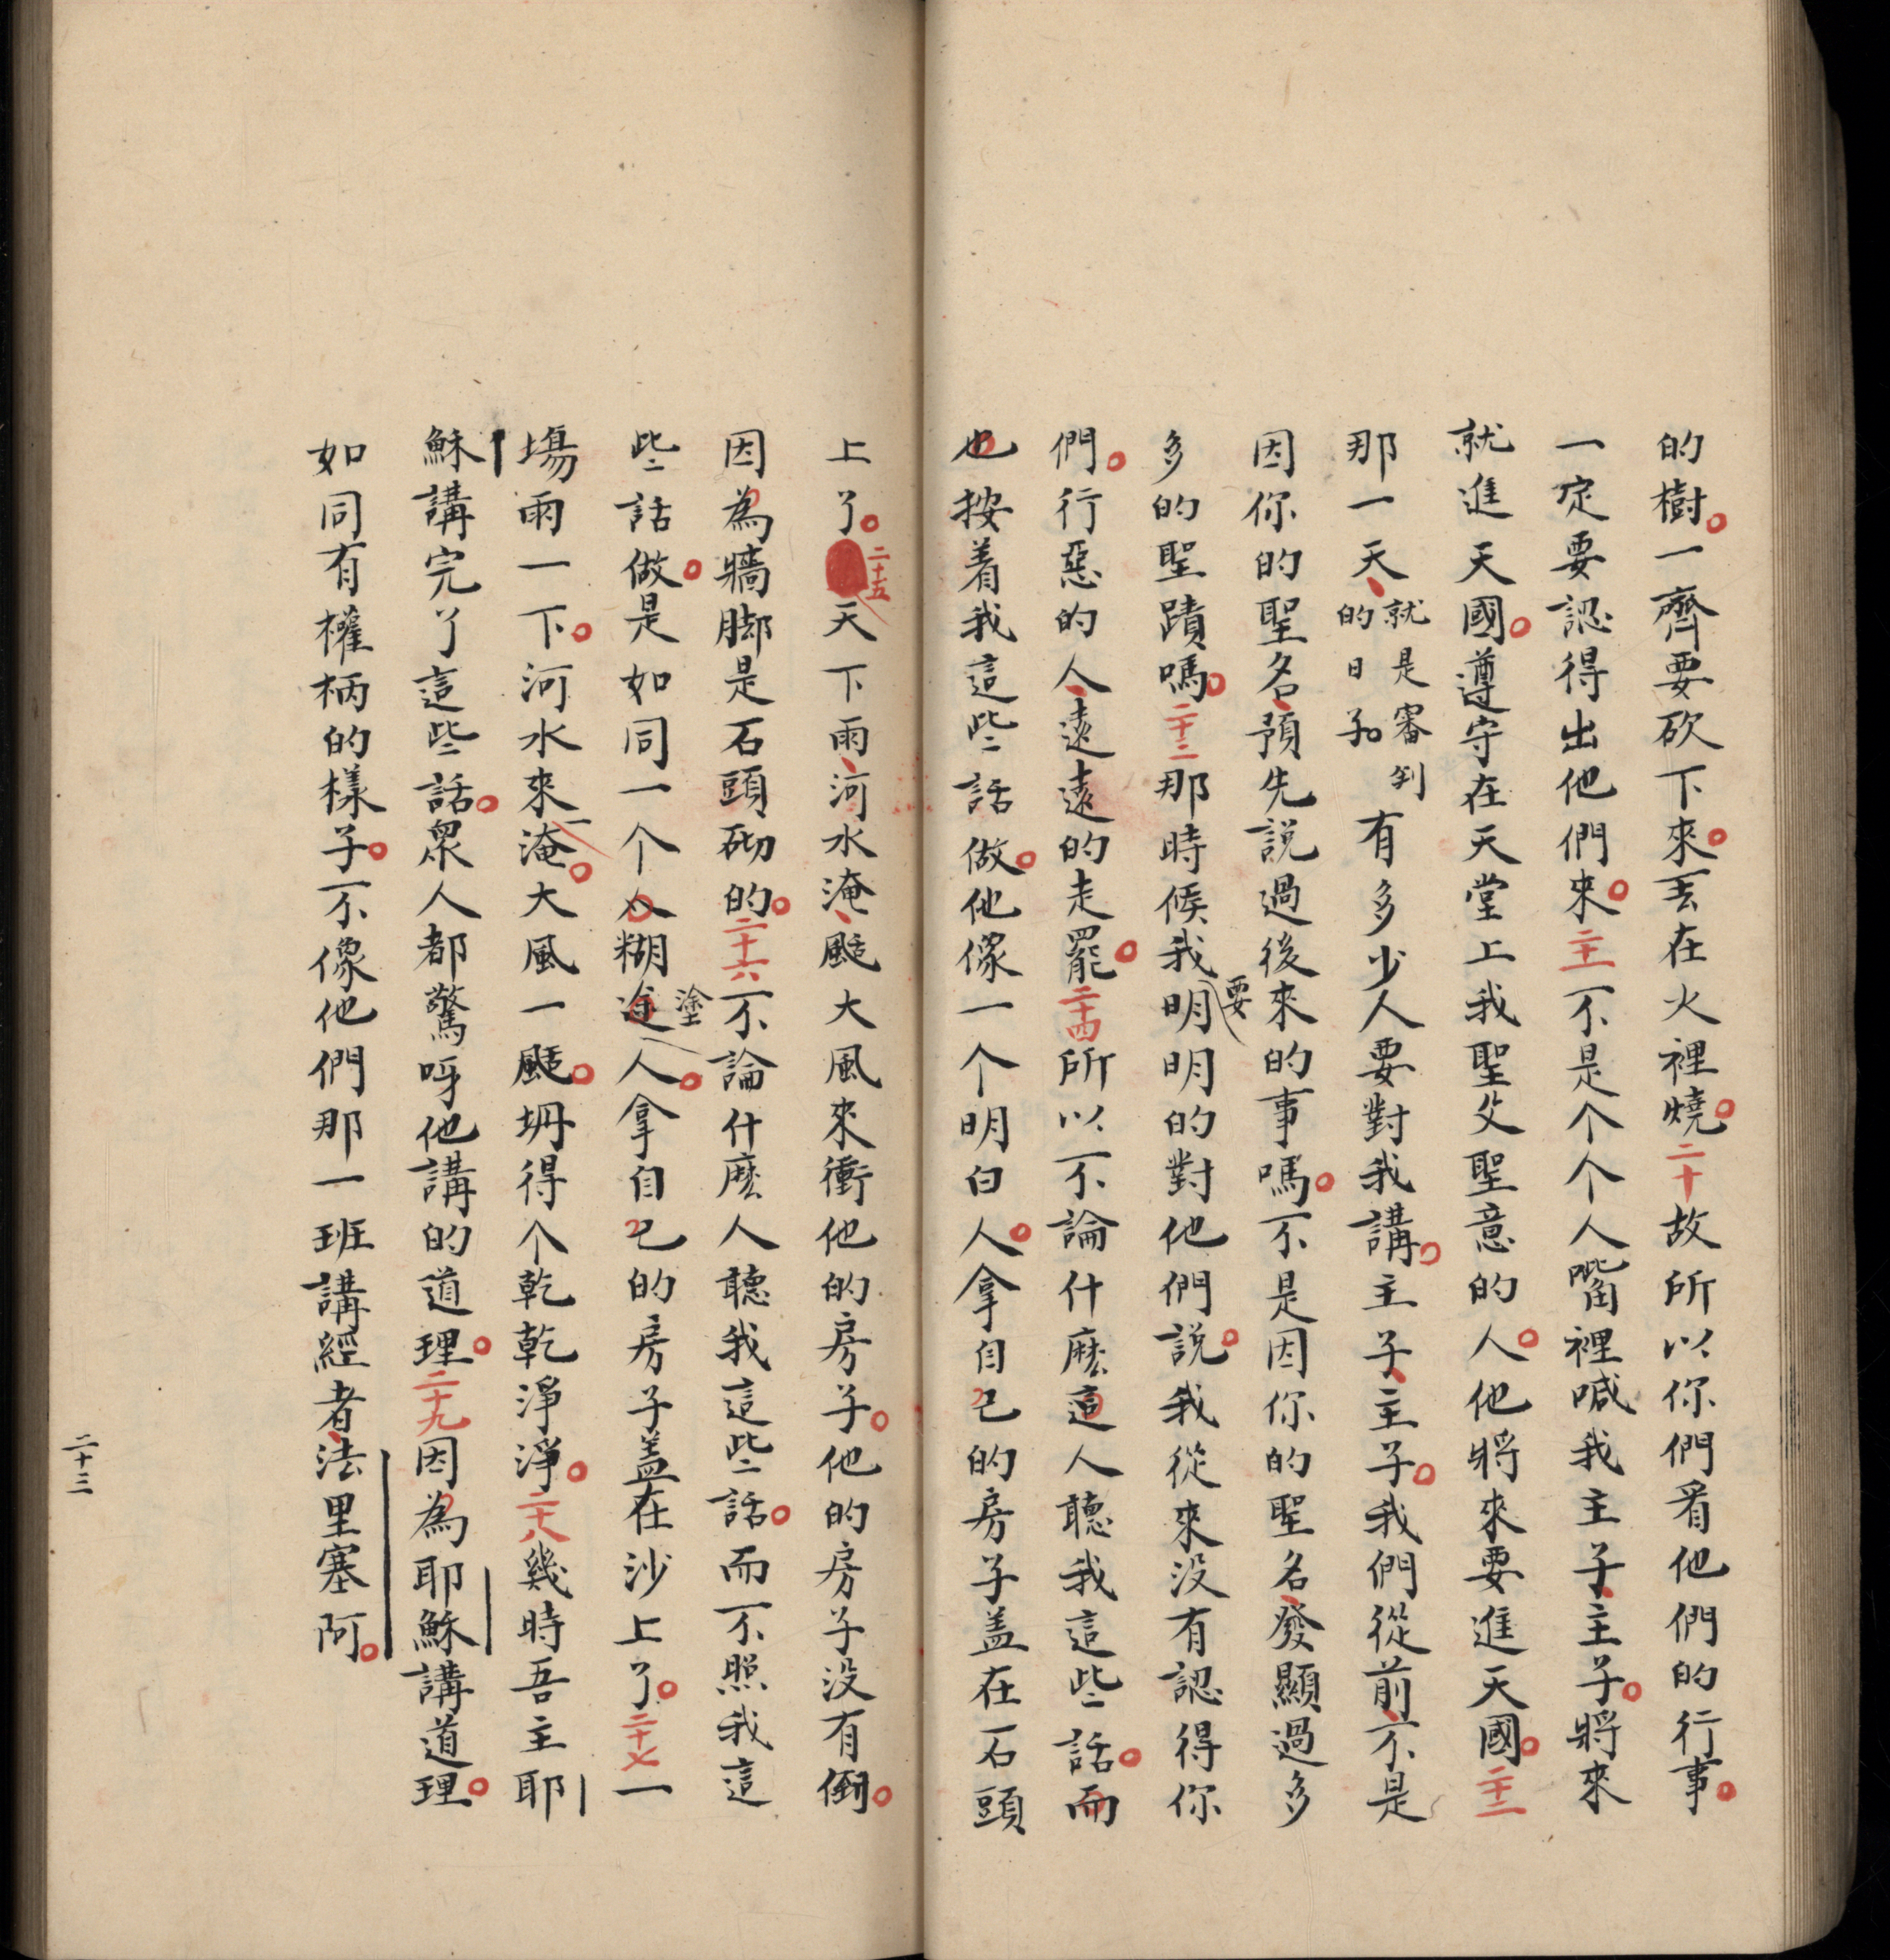 的樹。一齊要砍下來。丟在火裡燒。二十故所以你們看他們的行事。
一定要認得出他們來。二十一不是个个人嘴裡喊我主子、主子。將來
就進天國。遵守在天堂上我聖父聖意的人。他將來要進天國。二十二
那一天、就是審判的日子。有多少人要對我講。主子、主子。我們從前、不是
因你的聖名、預先説過後來的事嗎。不是因你的聖名、發顯過多
多的聖蹟嗎。二十三那時候我要明明的對他們説。我從來没有認得你
們。行惡的人、遠遠的走罷。二十四所以不論什麽這人聽我這些話。而
也按着我這些話做。他像一个明白人。拿自己的房子盖在石頭
上了。二十五天下雨、河水淹、颳大風來衝他的房子。他的房子没有倒。
因為牆脚是石頭砌的。二十六不論什麽人聽我這些話。而不照我這
些話做。是如同一个人糊途塗人。拿自己的房子盖在沙上了。二十七一
塲雨一下。河水來一淹。大風一颳。坍得个乾乾淨淨。二十八幾時吾主耶
穌講完了這些話。衆人都驚呀他講的道理。二十九因為耶穌講道理。
如同有權柄的樣子。不像他們那一班講經者、法里塞阿。
二十三